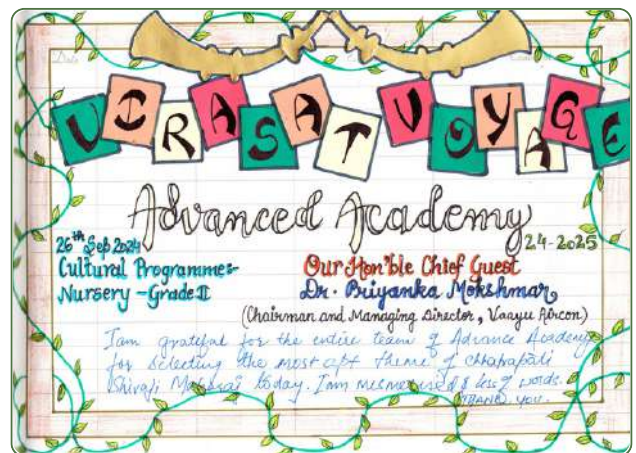 VIRASAT VOYAGE
Advanced Academy
26th Sep 2024
24-2025
Cultural Programme:-
Our Hon'ble Chief Guest
Nursery - Grade II
Dr. Priyanka Mokshmar
(Chairman and Managing Director, Vaayu Aircon)
I am grateful for the entire team of Advance Academy
for selecting the most apt theme of Chhatrapati
Shivaji Maharaj today. I am mesmerized & less of words.
THANK YOU.